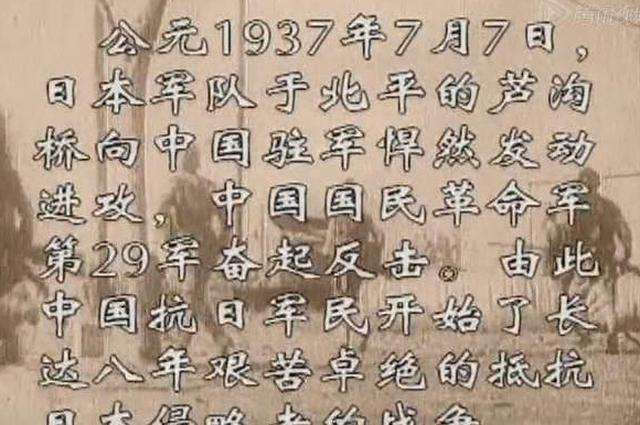 腾讯视频
公元1937年7月7日，
日本军队于北平的芦沟
桥向中国驻军悍然发动
进攻，中国国民革命军
第29军奋起反击。由此
中国抗日军民开始了长
达八年艰苦卓绝的抵抗
日本侵略者的战争